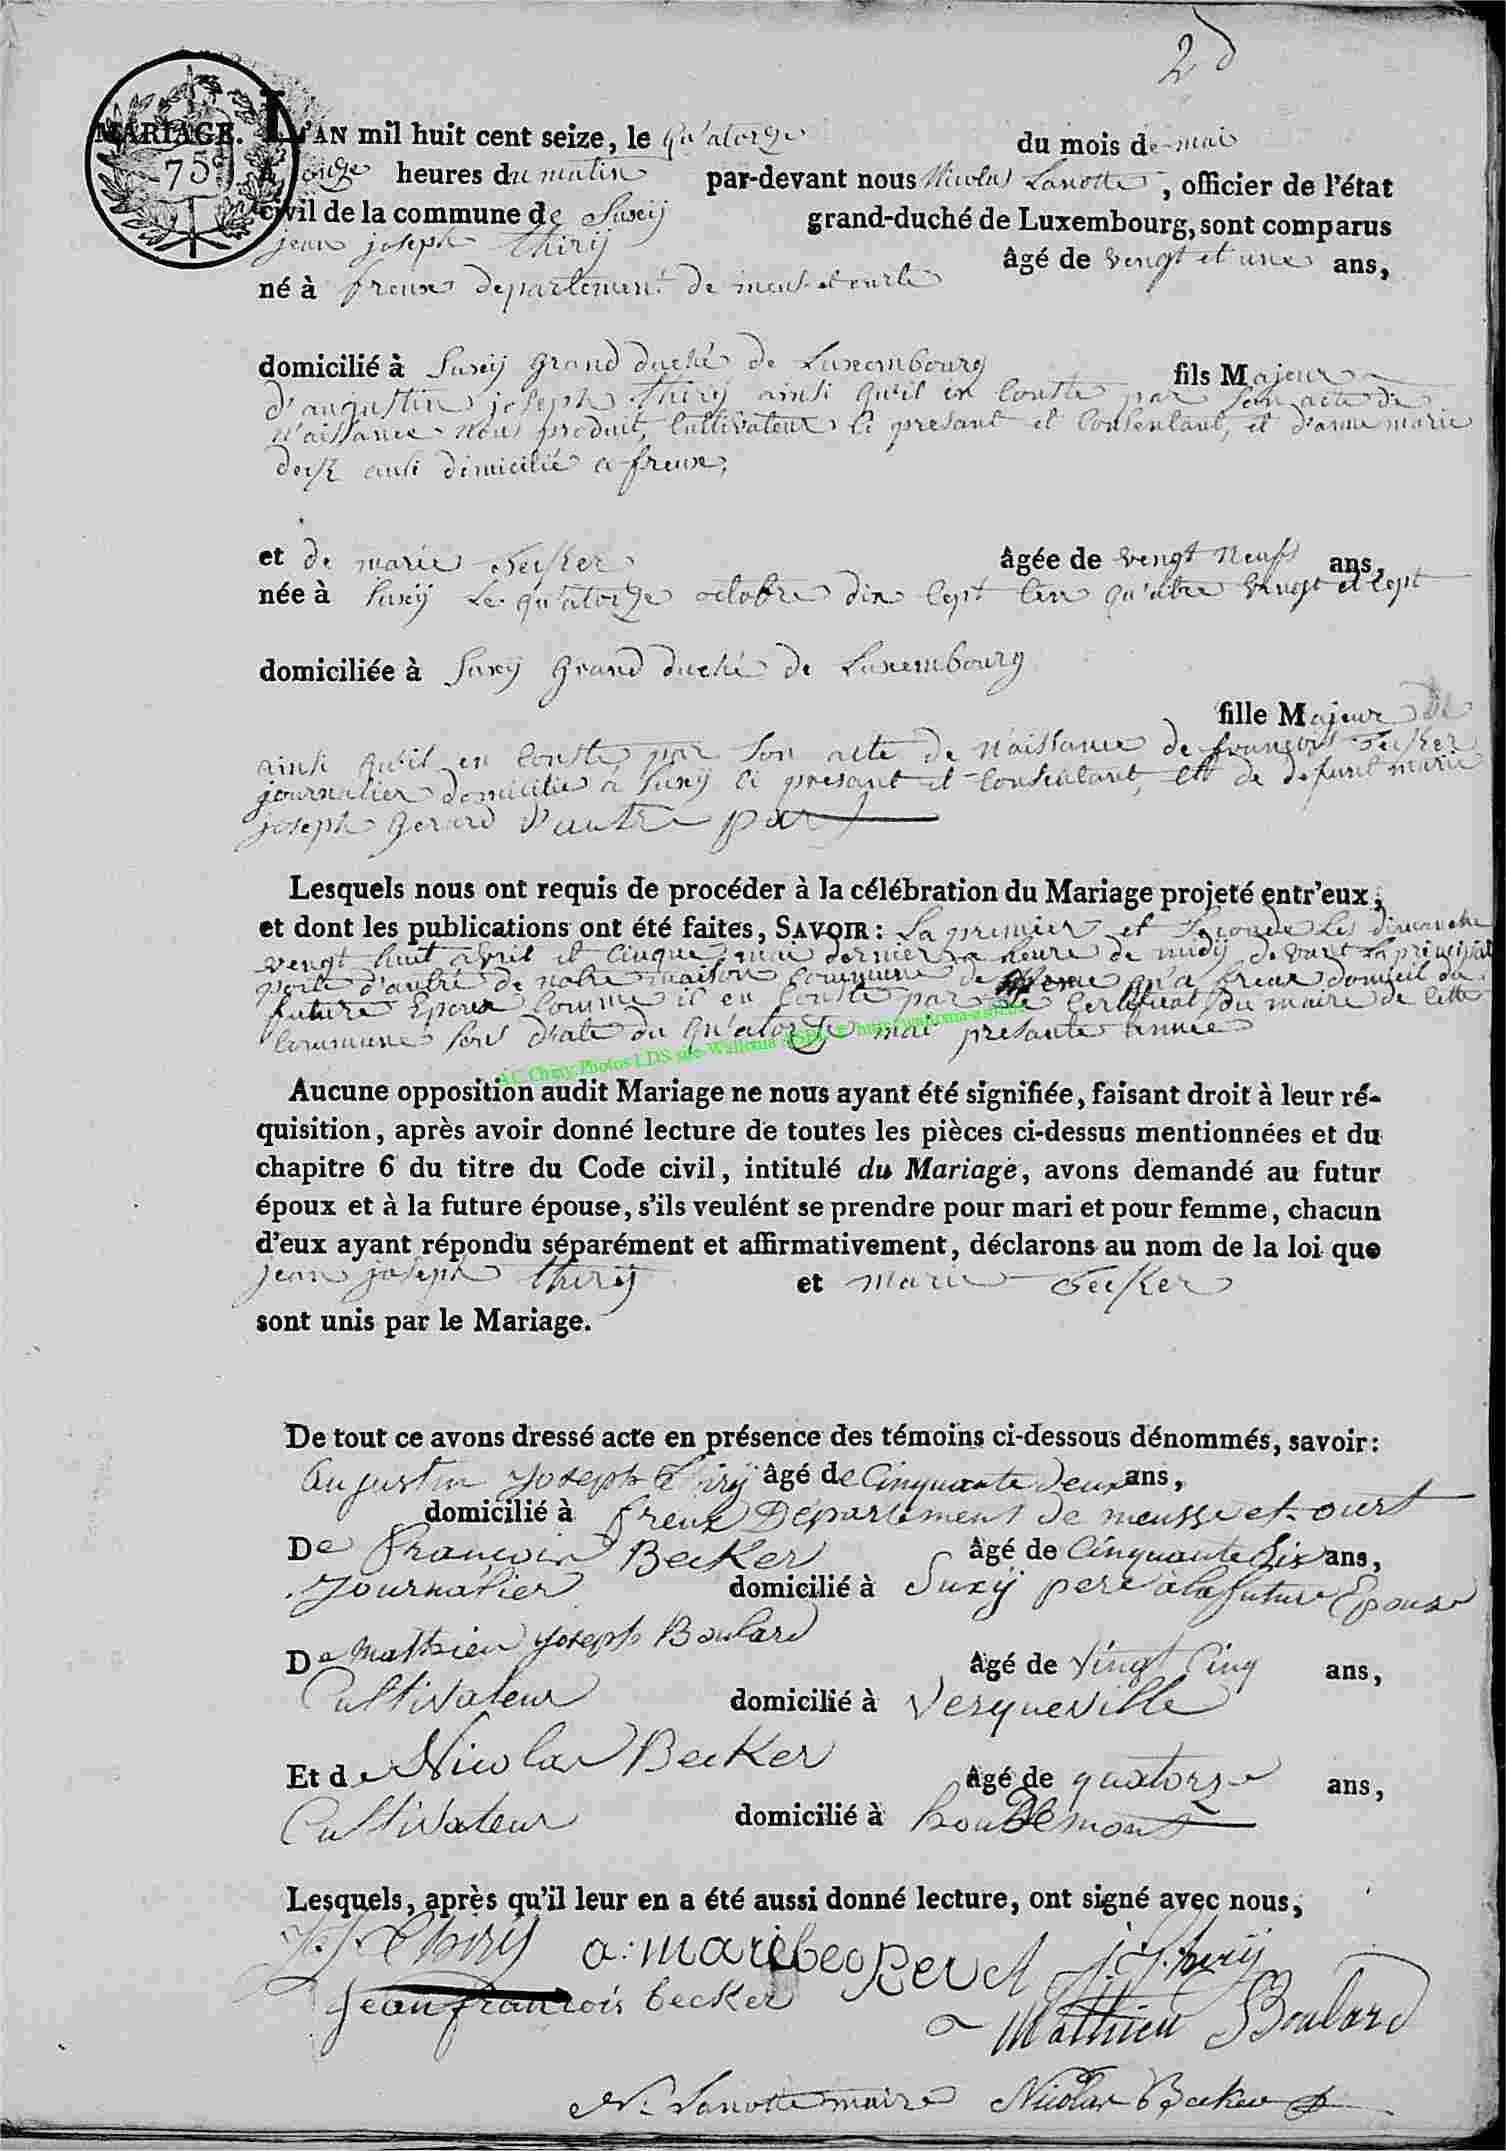 2d
MARIAGE. L'AN mil huit cent seize, le quatorze du mois de mai
75c
à onze heures du matin par-devant nous Nicolas Lanotte, officier de l'état
civil de la commune de Suxÿ grand-duché de Luxembourg, sont comparus
jean joseph thirÿ âgé de vengt et une ans,
né à freux departement de
domicilié à Suxÿ Grand duché de Luxembourg fils Majeur
d'augustin joseph thirÿ ainsi qu'il en Conste par Son acte de
n'aissance nous produit, Cultivateur Ci présant et Consentant, et d'anne marie
ausi dimicilié a freux,
et de marie Becker âgée de vengt neufs ans,
née à Suxÿ Le quatorze octobre dix Sept Cen quatre vengt et Sept
domiciliée à Suxÿ Grand duché de Luxembourg
fille Majeur de
ainsi qu'il en Conste par Son acte de n'aissance de françois Becker
journalier domicilié a Suxÿ Ci présant et Consentant, et de defunt marie
joseph Gerard d'autre part
Lesquels nous ont requis de procéder à la célébration du Mariage projeté entr'eux;
et dont les publications ont été faites, SAVOIR: La premier et Seconde Les dimanche
vengt huit avril et Cinque mai dernier a heure de midÿ devant La principal
porte d'autré de notre maison Commune de qu'a freux domicil du
future Epoux Comme il en Conste par Le Certificat du maire de Cette
Commune Sous d'ate du Qu'atorze mai présante année
AC Chiny, Photos LDS, site Walloma ASBL
Aucune opposition audit Mariage ne nous ayant été signifiée, faisant droit à leur ré-
quisition, après avoir donné lecture de toutes les pièces ci-dessus mentionnées et du
chapitre 6 du titre du Code civil, intitulé du Mariage, avons demandé au futur
époux et à la future épouse, s'ils veulént se prendre pour mari et pour femme, chacun
d'eux ayant répondu séparément et affirmativement, déclarons au nom de la loi que
jean joseph thirÿ et marie Becker
sont unis par le Mariage.
De tout ce avons dressé acte en présence des témoins ci-dessous dénommés, savoir:
Augustin Joseph Thirÿ âgé de Cinquante Deux ans,
domicilié à freux Département de meusse et ourt
De François Becker âgé de Cinquante Six ans,
Journalier domicilié à Suxÿ pere a la future Epouse
De Mathieu Joseph Boulard âgé de Vingt Cinq ans,
Cultivateur domicilié à Vesqueville
Et de Nicolas Becker âgé de quatorze ans,
Cultivateur domicilié à houdemont
Lesquels, après qu'il leur en a été aussi donné lecture, ont signé avec nous,
J. J. Thirÿ a: mari J. Thirÿ
Jean francois becker
Matthieu Boulard
N. Lanotte maire Nicolas Becker